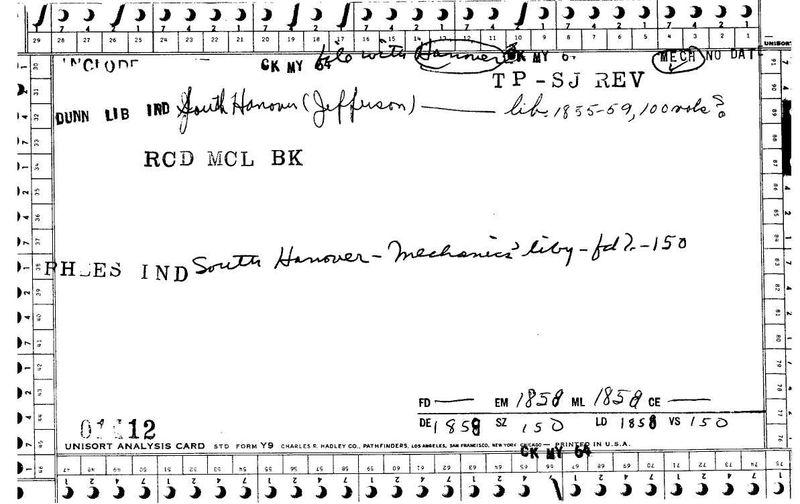 INCLUDE CK MY 64 file with Hanover CK MY 6 MECH NO DAT
TP-SJ REV
DUNN LIB IRD South Hanover (Jefferson) — lib. 1855-59, 100 vols?
RCD MCL BK
PHLES IND South Hanover - Mechanics' liby - fd ?. - 150
FD — EM 1858 ML 1858 CE —
DE 1858 SZ 150 LD 1858 VS 150
12
UNISORT ANALYSIS CARD STD FORM Y9 CHARLES R. HADLEY CO., PATHFINDERS, LOS ANGELES, SAN FRANCISCO, NEW YORK, CHICAGO — PRINTED IN U.S.A.
CK MY 64